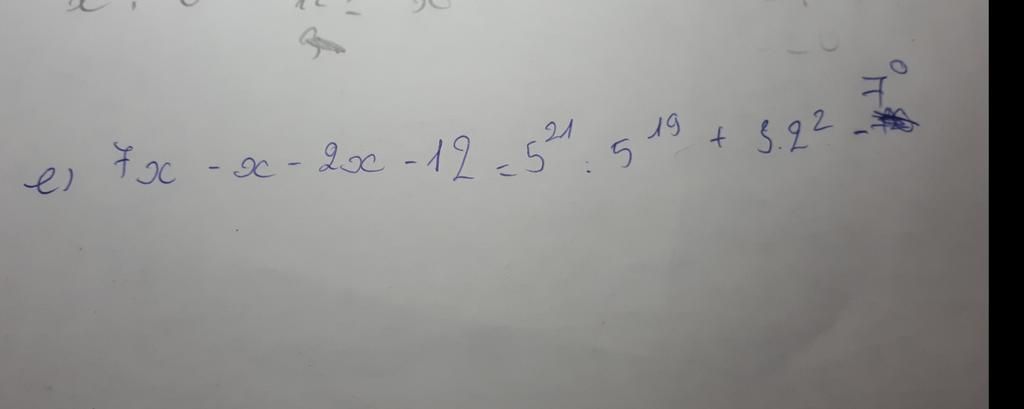 e) 7x - x - 2x - 12 = 5²¹ : 5¹⁹ + 3.2² - 7⁰